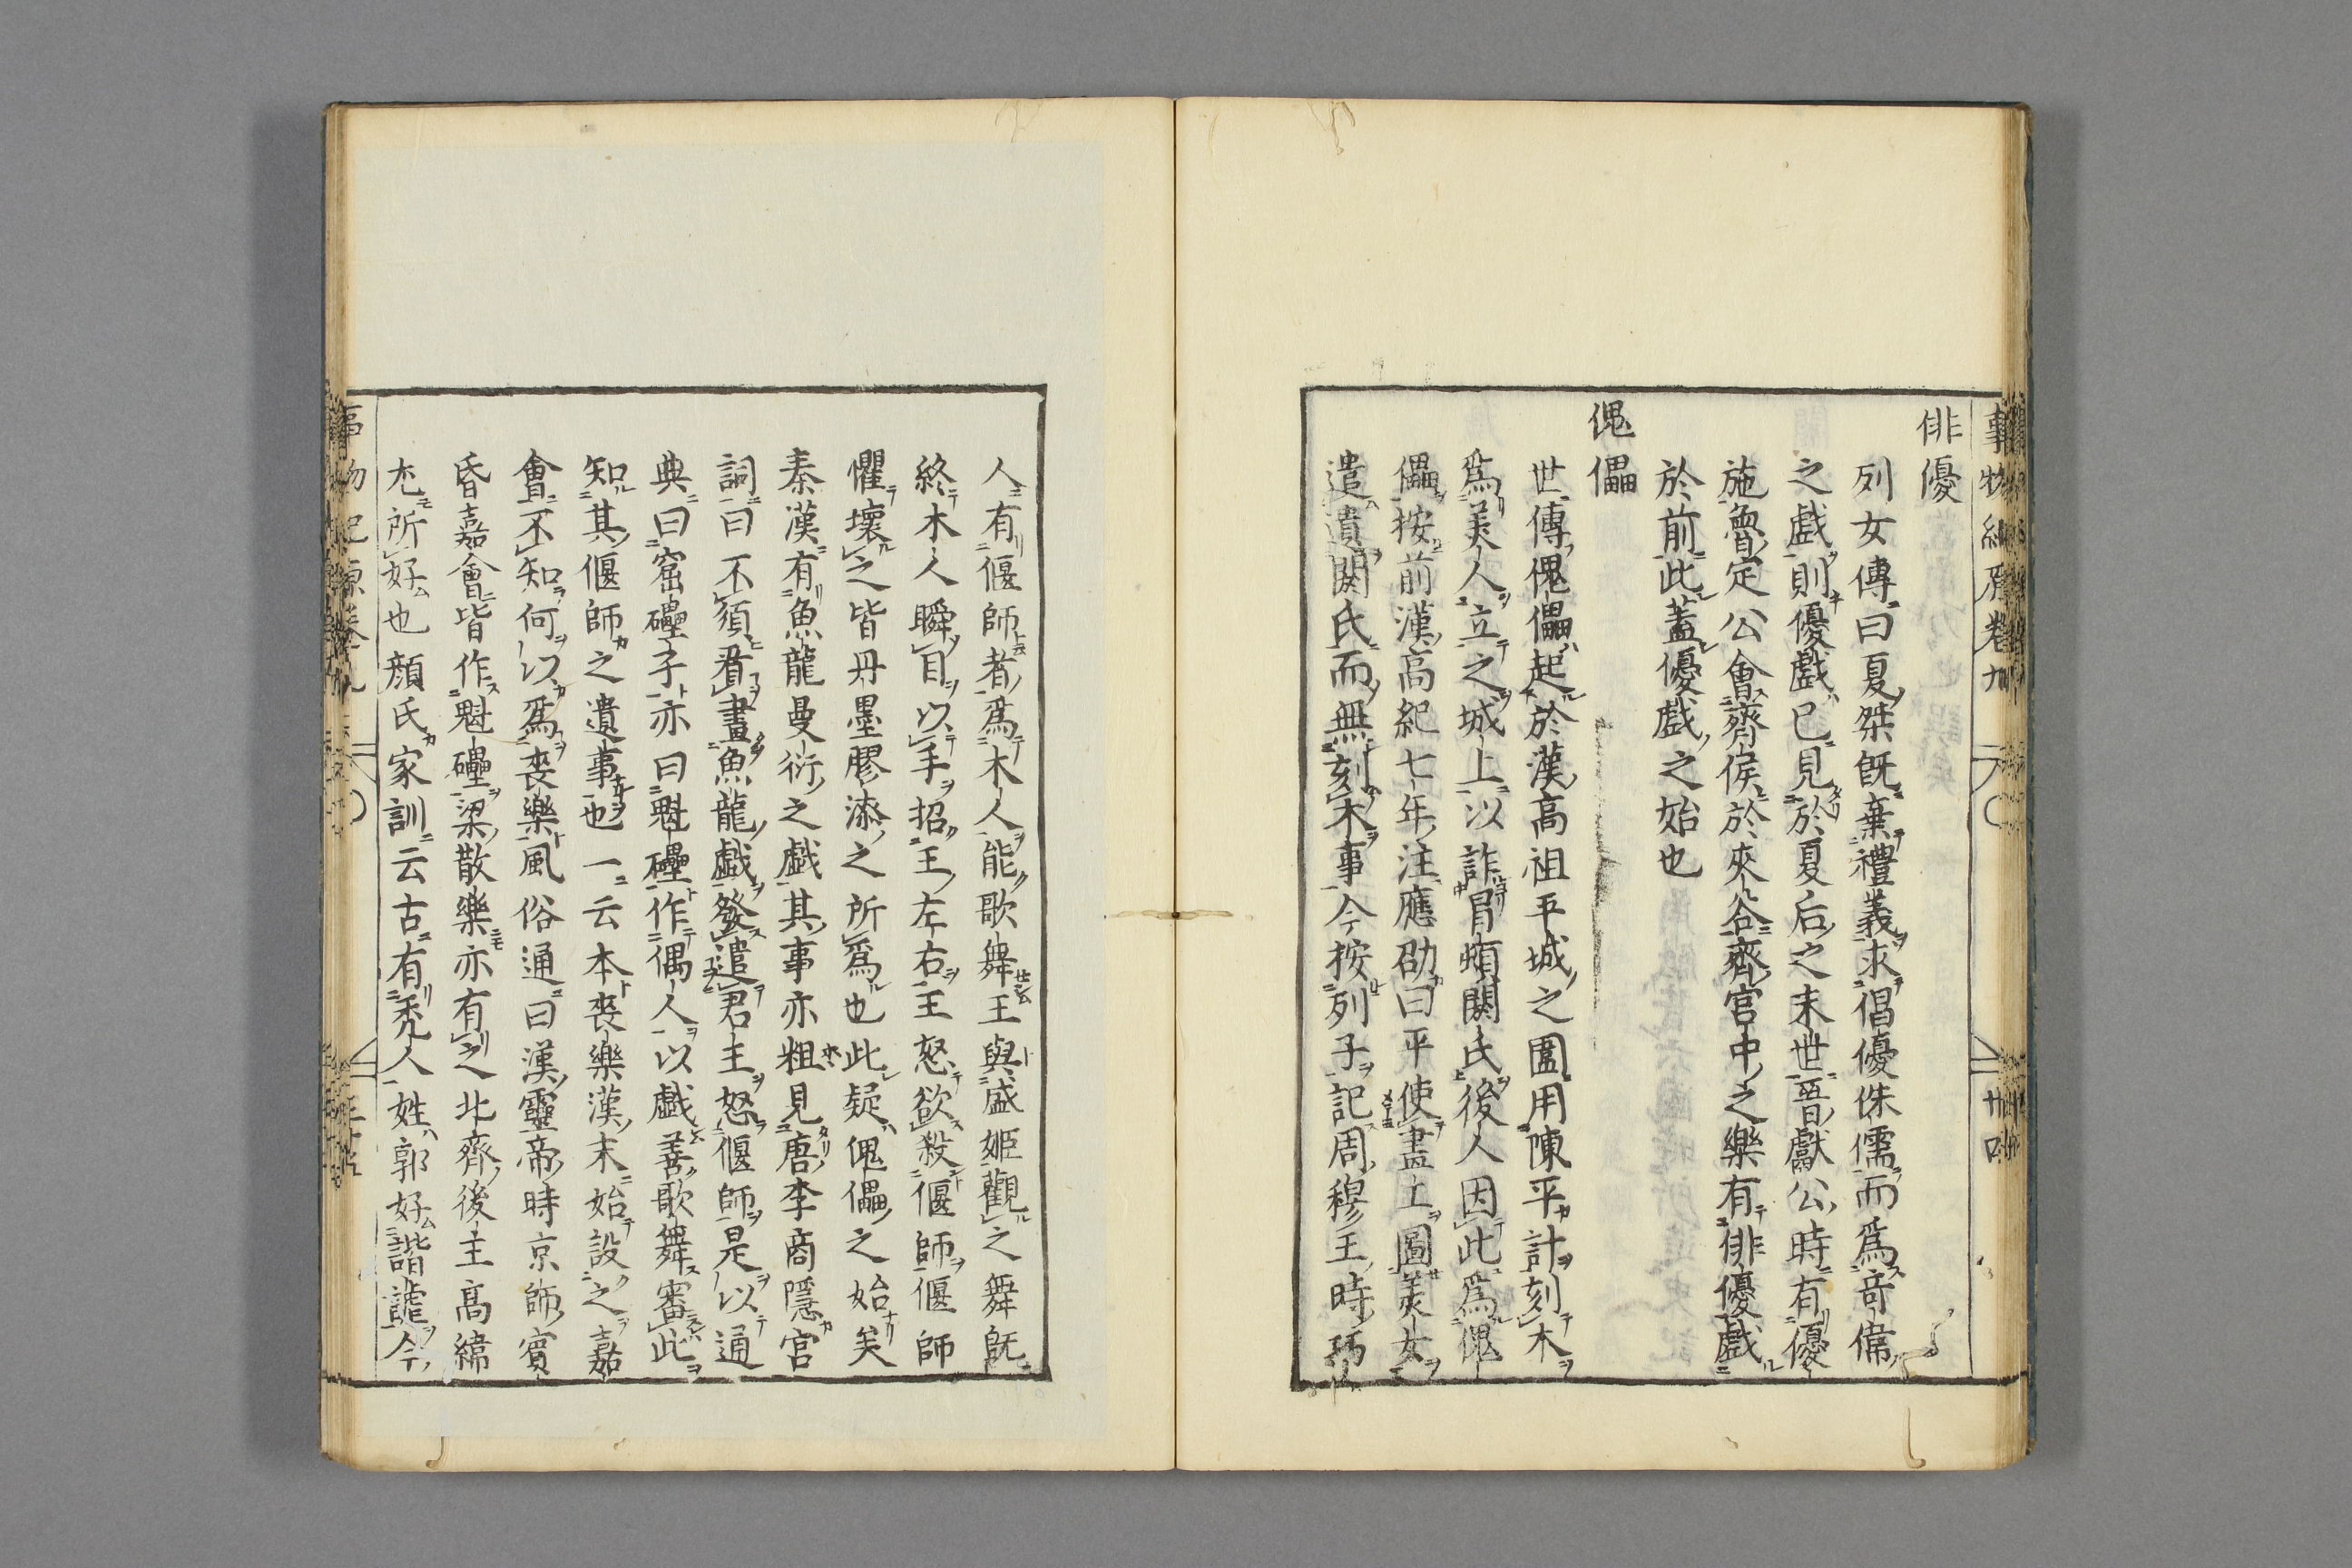 事物紀原卷九 廿四
俳優
列女傳曰夏桀旣棄禮義求倡優侏儒而爲竒偉
之戲則優戲已見於夏后之末世晉獻公時有優
施魯定公會齊侯於夾谷齊宮中之樂有俳優戲
於前此蓋優戲之始也
傀儡
世傳傀儡起於漢高祖平城之圍用陳平計刻木
爲美人立之城上以詐冒頓閼氏後人因此爲傀
儡按前漢高紀七年注應劭曰平使畫工圖美女
遣遺閼氏而無刻木事今按列子記周穆王時巧
人有偃師者爲木人能歌舞王與盛姬觀之舞旣
終木人瞬目以手招王左右王怒欲殺偃師偃師
懼壞之皆丹墨膠漆之所爲也此疑傀儡之始矣
秦漢有魚龍曼衍之戲其事亦粗見唐李商隱宮
詞曰不須看畫魚龍戲發遣君王怒偃師是以通
典曰窟礧子亦曰魁礧作偶人以戲善歌舞審此
知其偃師之遺事也一云本喪樂漢末始設之嘉
會不知何以爲喪樂風俗通曰漢靈帝時京師賓
昏嘉會皆作魁礧梁散樂亦有之北齊後主高緯
尤所好也顏氏家訓云古有秃人姓郭好諧謔今